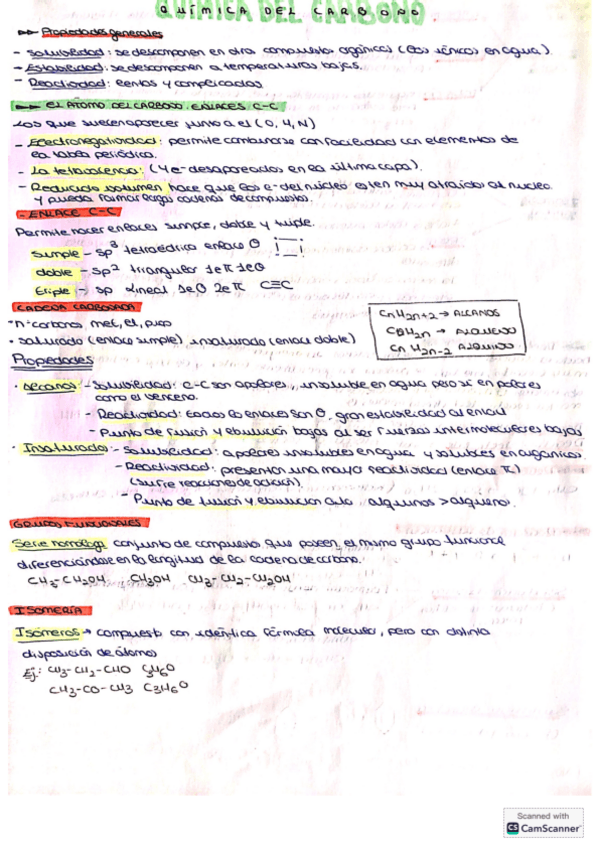 QUÍMICA DEL CARBONO
Propiedades generales
- Solubilidad: se descomponen en otros compuestos orgánicos (los iónicos en agua).
- Estabilidad: se descomponen a temperaturas bajas.
- Reactividad: lentas y complicadas
EL ÁTOMO DEL CARBONO. ENLACES C-C
Los que suelen aparecer junto a el (O, H, N)
- Electronegatividad: permite combinarse con facilidad con elementos de
la tabla periódica.
- La tetravalencia: (4 e- desapareados en la última capa).
- Reducido volumen hace que los e- del núcleo estén muy atraídos al nucleo
y pueda formar largas cadenas de compuestos.
- ENLACE C-C
Permite hacer enlaces simple, doble y triple.
simple - sp3 tetraédrica enlace σ
doble - sp2 triangular 1e π 1e σ
triple - sp lineal 1e σ 2e π C≡C
CADENA CARBONADA
• n- carbonos, met, et, prop
• saturado (enlace simple) insaturado (enlace doble)
CnH2n+2 → ALCANOS
CnH2n → ALQUENO
CnH2n-2 ALQUINO
Propiedades
• Alcanos: - Solubilidad: C-C son apolares, insoluble en agua pero sí en polares
como el benceno.
- Reactividad: todos los enlaces son σ, gran estabilidad al enlace
- Punto de fusión y ebullición bajos al ser fuerzas intermoleculares bajas
• Insaturados: - Solubilidad: apolares insolubles en agua y solubles en orgánicos.
- Reactividad: presentan una mayor reactividad (enlace π)
(sufre reacciones de adición).
- Punto de fusión y ebullición alto alquinos > alqueno.
GRUPOS FUNCIONALES
Serie homóloga conjunto de compuestos que poseen el mismo grupo funcional
diferenciándose en la longitud de la cadena de carbono.
CH3-CH2OH CH3OH CH3-CH2-CH2OH
ISOMERÍA
Isómeros → compuesto con idéntica fórmula molecular, pero con distinta
disposición de átomos
Ej: CH3-CH2-CHO C3H6O
CH3-CO-CH3 C3H6O
Scanned with
CS CamScanner